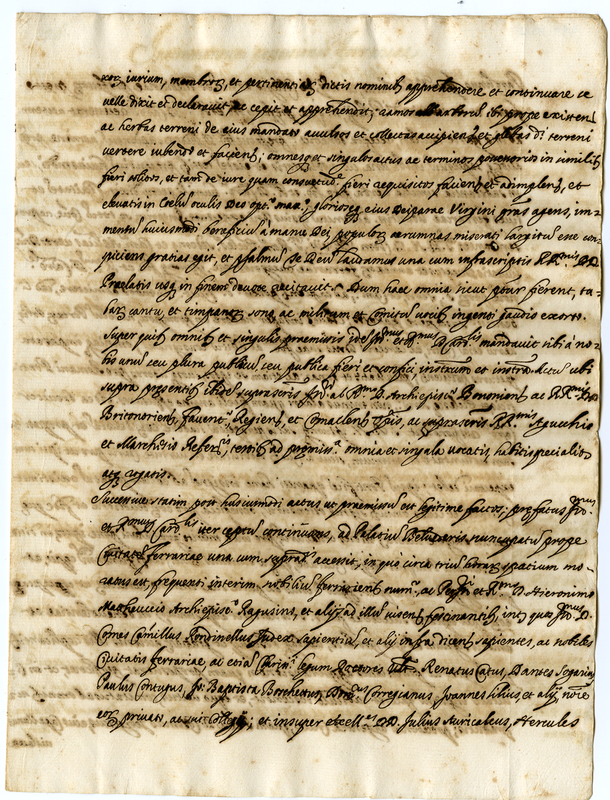 iurium, membroꝝ, et pertinentiaꝝ dictis nominibꝰ apprehendere et continuare se
velle dixit et declaravit, ac cepit et apprehendit; ramos arboreũ ibi prope existen
ac herbas terreni de eius mandato avulsos et collectas accipienꝰ et glebas dⁱ terreni
vertere iubens et faciens; omnesqꝫ et singulos actus ac terminos possessorios in similibꝰ
fieri solitos, et tam de iure quam consuetudⁿᵉ fieri requisitos faciens et adimplens, et
elevatis in Coelũ oculis Deo optᵒ maxᵒ gloriosaeqꝫ eius Deiparae Virgini grãs agens, im-
mensũ huiusmodi beneficiũ à manu Dei populoꝝ aerumnas miserati largitũ esse con-
spiciens gratias egit, et psalmũ Te Deũ laudamus una cum infrascriptis RRᵐⁱˢ DD
Praelatis usqꝫ in finem devote recitavit. Dum haec omnia sicut ponitur fierent, tu-
baꝝ cantu, et timpanoꝝ sono, ac militum et comitum vocibꝰ ingenti gaudio exorto.
Super quibꝰ omnibꝰ et singulis praemissis idem Illᵐᵘˢ et Rᵐᵘˢ D. Cardˡⁱˢ mandavit sibi à no-
bis unũ seu plura publicũ seu publica fieri et confici instrũm et instrã Actũ ubi
supra praesentibꝰ ibidẽ suprascriptis Illᵐᵒ et Rᵐᵒ D. Archiepiscᵒ Bononienꝰ ac RRᵐⁱˢ DD
Britonorienꝰ, Faventⁿ, Regienꝰ, et Comaclenꝰ Episˢ, ac suprascriptis RRᵐⁱˢ Agucchio
et Marchesio Referˢ, testibꝰ ad praemissᵃ omnia et singula vocatis, habitis specialitẽ
atqꝫ rogatis.
Successive statim post huiusmodi actus ut praemissũ est legitime factos, prefatus Illᵐᵘˢ
et Rᵐᵘˢ Cardˡⁱˢ iter ceptũ continuans, ad Palatiũ Belvederis nuncupatũ prope
Civitatẽ Ferrariae una cum supraˢ accessit, in quo circa triũ horaꝝ spatium mo-
ratus est, frequenti interim nobiliũ ferrariens numᵒ, ac Perˡˡⁱ et Rᵐᵒ D. Hieronimo
Mattheuccio Archiepiscᵒ Ragusino, et alijs ad illũ visens festinantibꝰ, inter quos Illᵐᵘˢ D.
Comes Camillus Rondinellus Iudex sapientiũ, et alij infra dicenꝰ sapientes, ac nobiles
Civitatis Ferrariae, ac etiã Clarisᵐⁱ legum Doctores Renatus Catus, Dantes Segarius
Paulus Contugus, Io: Baptista Borchettus, Correggianus Joannes lilius, et alij nõie
eoꝝ privati, ac sui Collegij; et insuper excellᵉˢ DD. Julius Auricalcus, Hercules